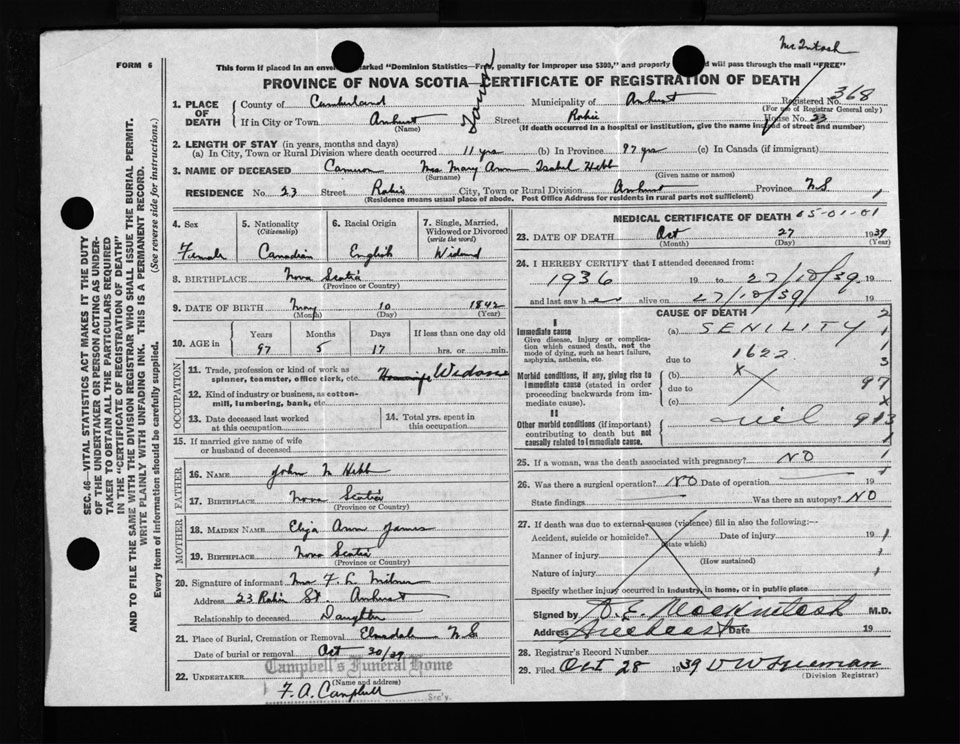 Mc Intosh
FORM 6
This form if placed in an marked "Dominion Statistics—Free, penalty for improper use $300," and properly will pass through the mail "FREE"
PROVINCE OF NOVA SCOTIA—CERTIFICATE OF REGISTRATION OF DEATH
Registered No. 368
(For use of Registrar General only)
1. PLACE OF DEATH
County of Cumberland Municipality of Amherst
If in City or Town Amherst Street House No. 23
(Name) (If death occurred in a hospital or institution, give the name instead of street and number)
2. LENGTH OF STAY (in years, months and days)
(a) In City, Town or Rural Division where death occurred 11 yrs (b) In Province 97 yrs (c) In Canada (if immigrant)
3. NAME OF DECEASED Cameron Mrs Mary Ann Isabel Hebb
(Surname) (Given name or names)
RESIDENCE No. 23 Street City, Town or Rural Division Amherst Province N.S. 1
(Residence means usual place of abode. Post Office Address for residents in rural parts not sufficient)
4. Sex
Female
5. Nationality
(Citizenship)
Canadian
6. Racial Origin
English
7. Single, Married, Widowed or Divorced
(write the word)
Widowed
8. BIRTHPLACE Nova Scotia
(Province or Country)
9. DATE OF BIRTH May 10 1842
(Month) (Day) (Year)
10. AGE in
Years Months Days If less than one day old
97 5 17 hrs. or min.
OCCUPATION
11. Trade, profession or kind of work as spinner, teamster, office clerk, etc. Housewife Widow
12. Kind of industry or business, as cotton-mill, lumbering, bank, etc.
13. Date deceased last worked at this occupation
14. Total yrs. spent in this occupation
15. If married give name of wife or husband of deceased
FATHER
16. NAME John Hebb
17. BIRTHPLACE Nova Scotia
(Province or Country)
MOTHER
18. MAIDEN NAME Eliza Ann James
19. BIRTHPLACE Nova Scotia
(Province or Country)
20. Signature of informant Mrs F. L. Milner
Address 23 St. Amherst
Relationship to deceased Daughter
21. Place of Burial, Cremation or Removal Elmsdale N.S.
Date of burial or removal Oct 30/39
Campbell's Funeral Home
22. UNDERTAKER
(Name and address)
F. A. Campbell
MEDICAL CERTIFICATE OF DEATH 65-01-01
23. DATE OF DEATH Oct 27 1939
(Month) (Day) (Year)
24. I HEREBY CERTIFY that I attended deceased from:
1936 19 to 27/10/39 19
and last saw her alive on 27/10/39 19
CAUSE OF DEATH 2
I
Immediate cause
Give disease, injury or complication which caused death, not the mode of dying, such as heart failure, asphyxia, asthenia, etc.
(a) SENILITY 1
due to 1622 3
Morbid conditions, if any, giving rise to immediate cause (stated in order proceeding backwards from immediate cause).
(b) 97
due to
(c) X
II
Other morbid conditions (if important) contributing to death but not causally related to immediate cause.
nil 913
25. If a woman, was the death associated with pregnancy? NO
26. Was there a surgical operation? NO Date of operation
State findings Was there an autopsy? NO
27. If death was due to external causes (violence) fill in also the following:—
Accident, suicide or homicide? Date of injury 19
(State which)
Manner of injury
(How sustained)
Nature of injury
Specify whether injury occurred in industry, in home, or in public place
Signed by A. E. Mackintosh M.D.
Address Amherst Date 19
28. Registrar's Record Number
29. Filed Oct 28 1939
(Division Registrar)
SEC. 46—VITAL STATISTICS ACT MAKES IT THE DUTY OF THE UNDERTAKER OR PERSON ACTING AS UNDERTAKER TO OBTAIN ALL THE PARTICULARS REQUIRED IN THE "CERTIFICATE OF REGISTRATION OF DEATH" AND TO FILE THE SAME WITH THE DIVISION REGISTRAR WHO SHALL ISSUE THE BURIAL PERMIT.
WRITE PLAINLY WITH UNFADING INK. THIS IS A PERMANENT RECORD.
Every item of information should be carefully supplied. (See reverse side for instructions.)